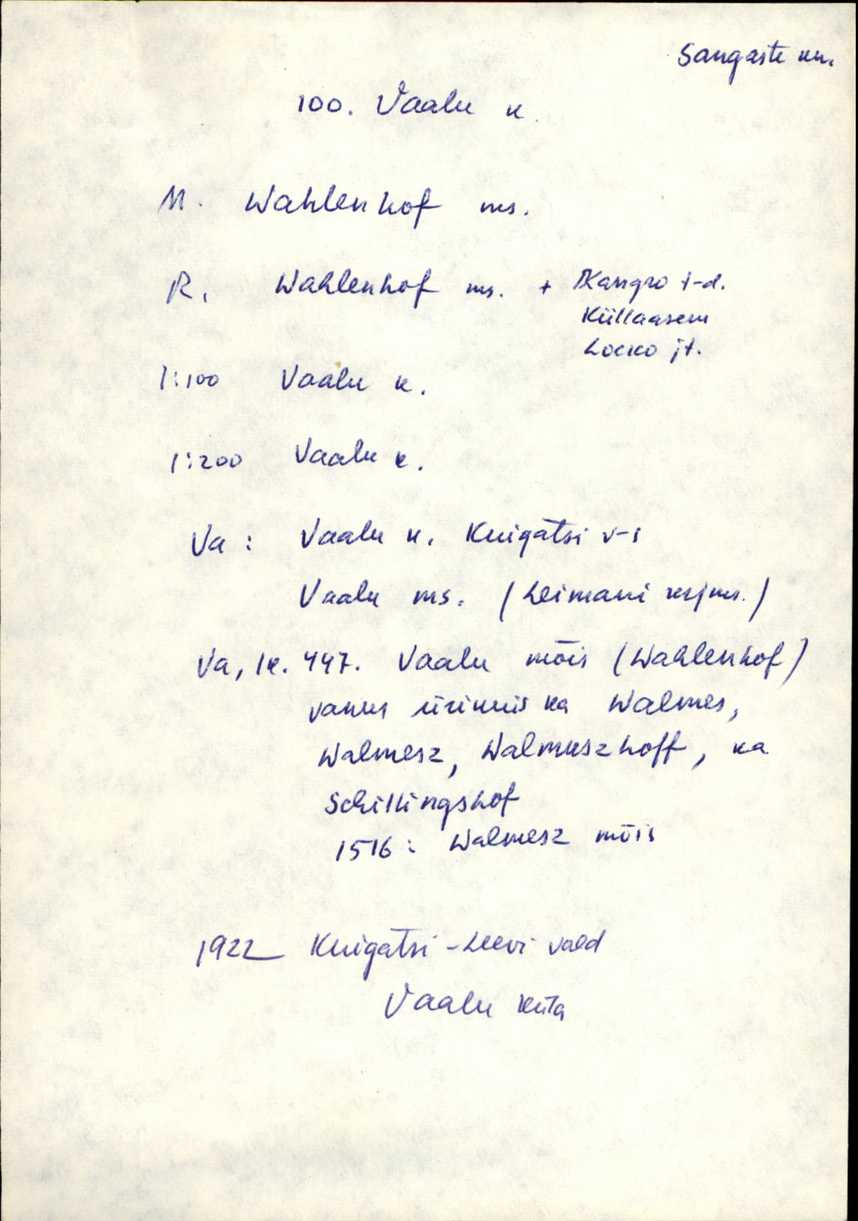 Sangaste kh.
100. Vaalu k.
M. Wahlenhof ms.
R. Wahlenhof ms. + Kangro t-d.
Küllaasem
Locko jt.
1:100 Vaalu k.
1:200 Vaalu k.
Va: Vaalu k. Kuigatsi v-s
Vaalu ms. (Leimani krjms.)
Va, lk. 447. Vaalu mõis (Wahlenhof)
vanus ürikuis ka Walmes,
Walmesz, Walmuszhoff, ka
Schillingshof
1516: Walmesz mõis
1922 Kuigatsi-Leevi vald
Vaalu küla